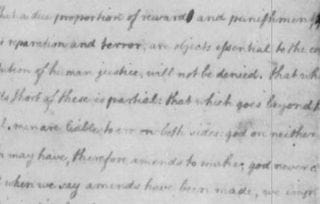 that a due proportion of reward, and punishment,
reparation and terror, are objects essential to the
of human justice, will not be denied. that
short of these is partial: that which goes beyond
men are liable to err on both sides: god on neither
may have, therefore amends to make; god never
when we say amends have been made, we